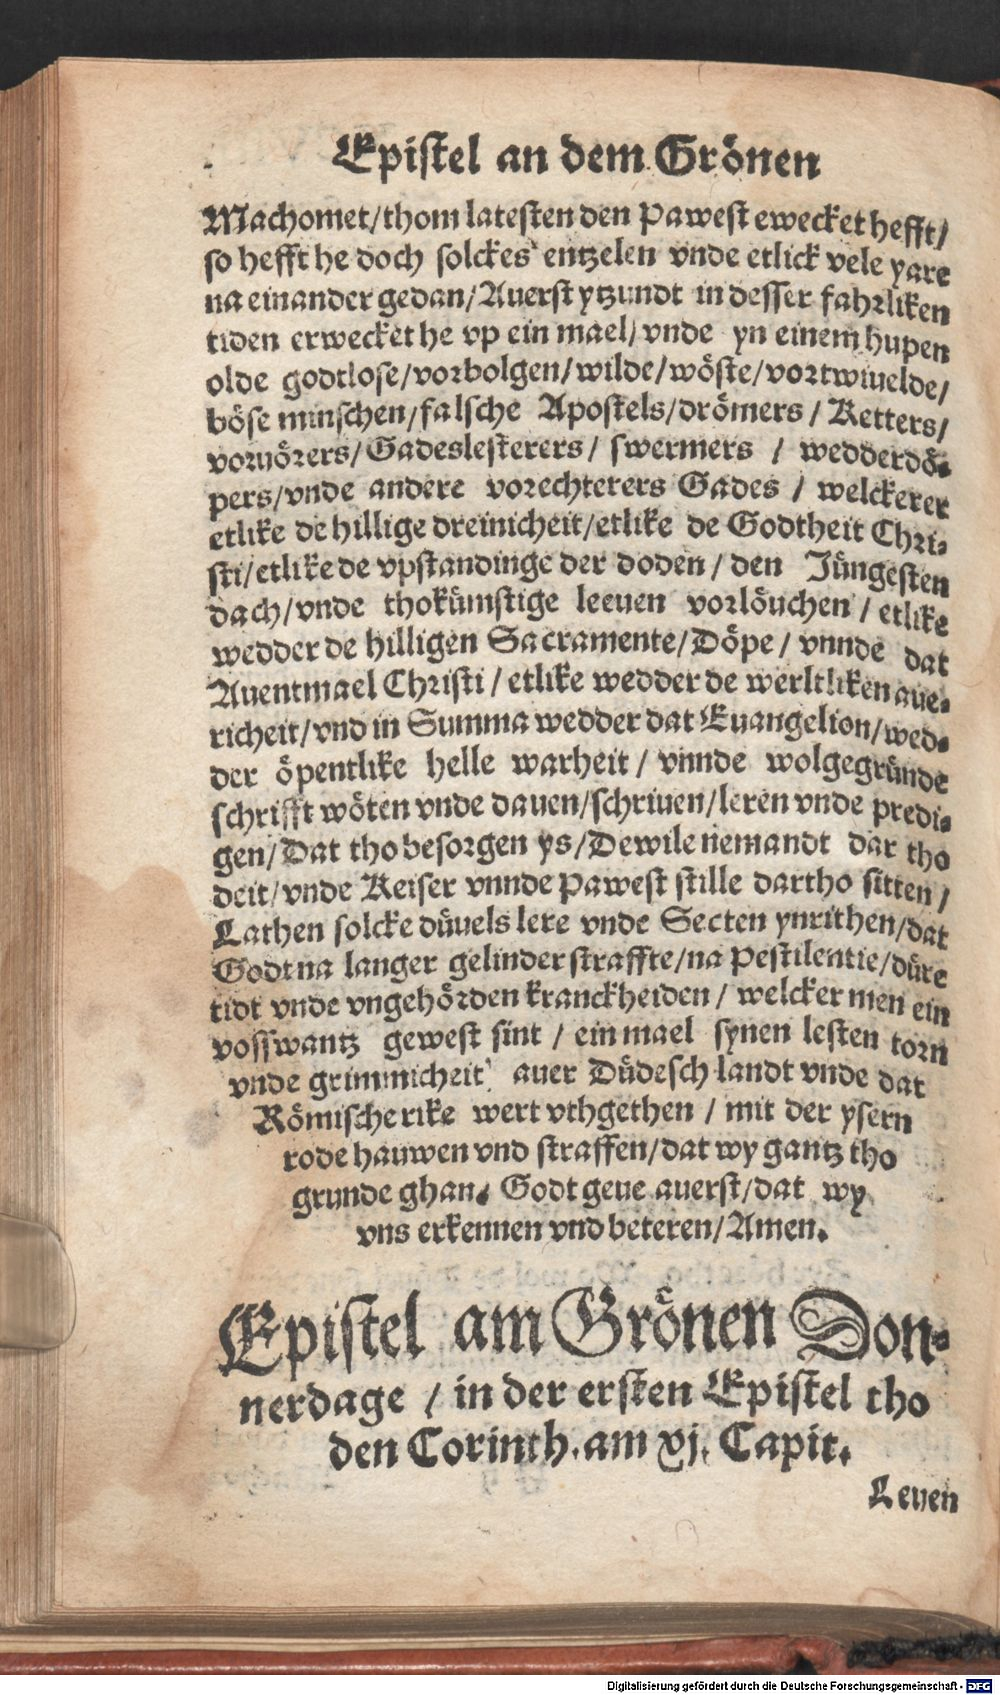 Epistel an dem Grönen
Machomet/thom latesten den Pawest ewecket hefft/
so hefft he doch solckes entzelen vnde etlick vele yare
na einander gedan/Auerst ytzundt in desser fahrliken
tiden erwecket he vp ein mael/vnde yn einem hupen
olde godtlose/vorbolgen/wilde/wöste/vortwiuelde/
böse minschen/falsche Apostels/drömers/Ketters/
voruörers/Gadeslesterers/swermers/wedderdö-
pers/vnde andere vorechterers Gades/welckerer
etlike de hillige dreinicheit/etlike de Godtheit Chri-
sti/etlike de vpstandinge der doden/den Jüngesten
dach/vnde thokümstige leeuen vorlöuchen/etlike
wedder de hilligen Sacramente/Döpe/vnnde dat
Auentmael Christi/etlike wedder de werltliken aue-
richeit/vnd in Summa wedder dat Euangelion/wed-
der öpentlike helle warheit/vnnde wolgegründe
schrifft wöten vnde dauen/schriuen/leren vnde predi-
gen/Dat tho besorgen ys/Dewile niemandt dar tho
deit/vnde Keiser vnnde Pawest stille dartho sitten/
Lathen solcke düuels lere vnde Secten ynrithen/dat
Godt na langer gelinder straffte/na Pestilentie/düre
tidt vnde vngehörden kranckheiden/welcker men ein
vosswantz gewest sint/ein mael synen lesten torn
vnde grimmicheit auer Düdesch landt vnde dat
Römische rike wert vthgethen/mit der ysern
rode hauwen vnd straffen/dat wy gantz tho
grunde ghan. Godt geue auerst/dat wy
vns erkennen vnd beteren/Amen.
Epistel am Grönen Don-
nerdage/in der ersten Epistel tho
den Corinth. am xj. Capit.
Leuen
Digitalisierung gefördert durch die Deutsche Forschungsgemeinschaft - DFG